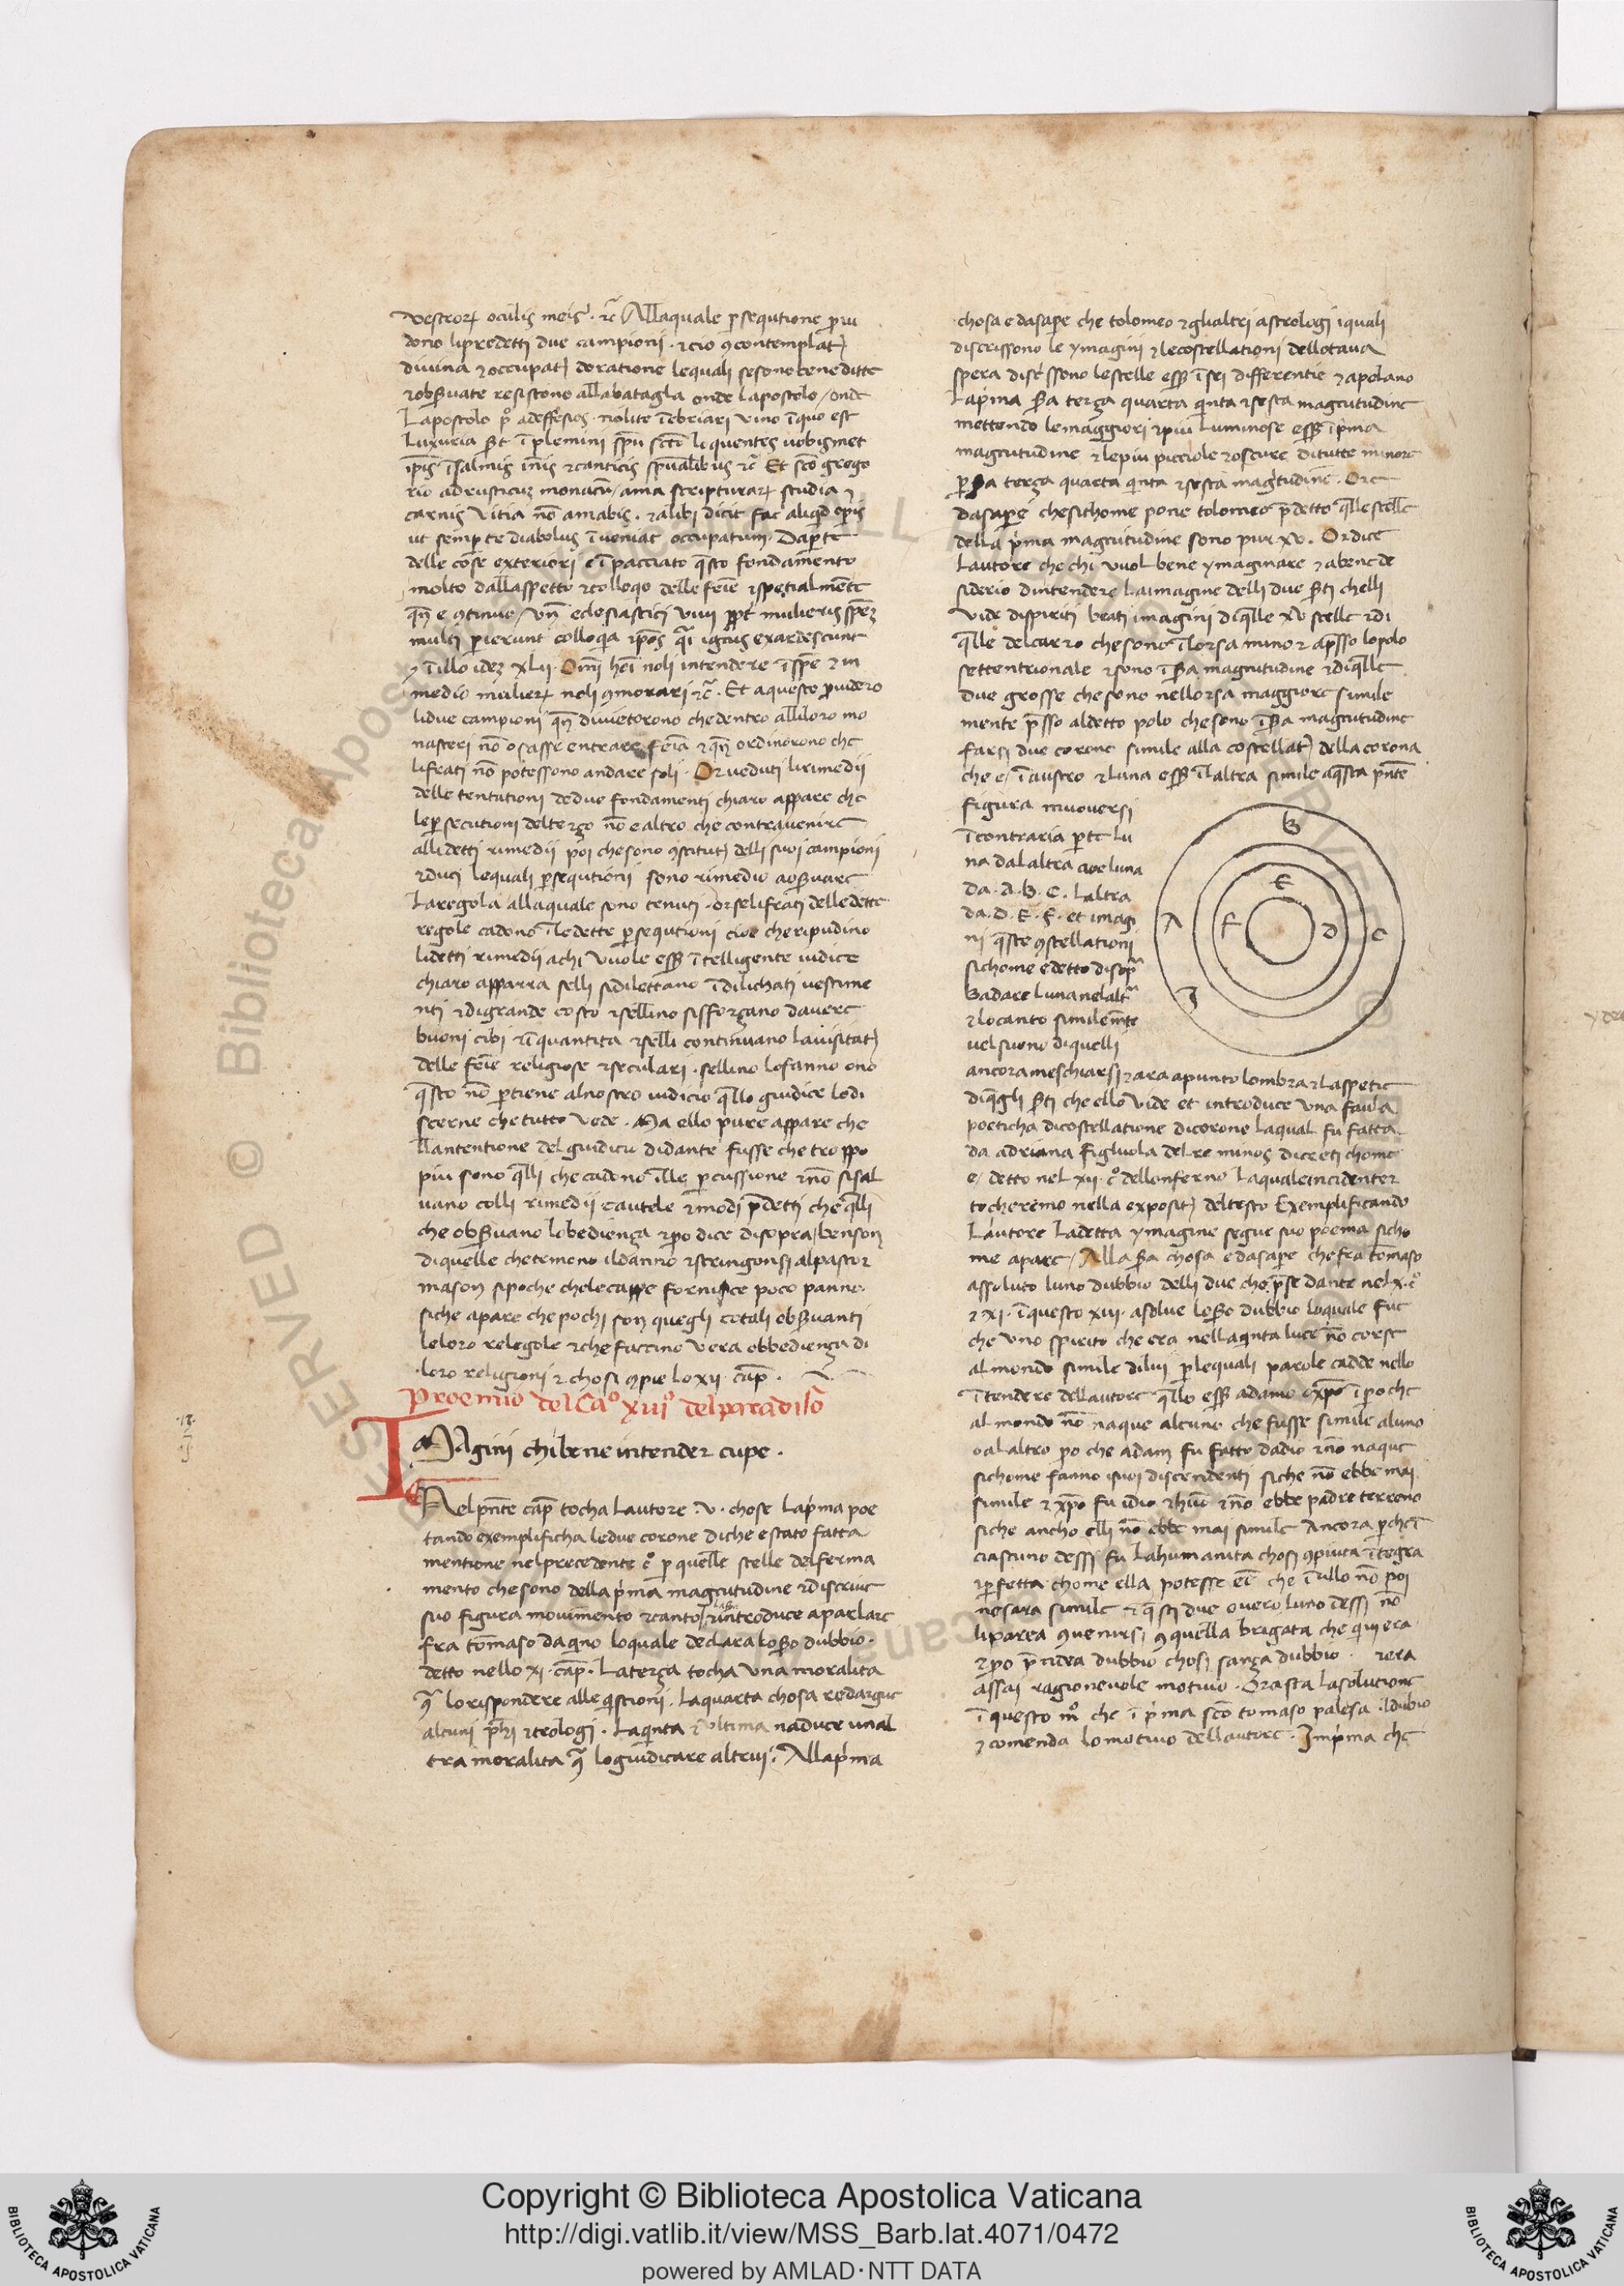 vestroꝝ oculis meis . ⁊c̄ Allaquale ꝑsequtione ꝓui
dono lipredetti due campioni . ⁊cio ꝯcontemplat
divina ⁊occupat doratione lequali sesono beneditte
⁊obẜuate resistono allabatagla onde lapostolo / onde
Lapostolo adeffesios . nolite īebriari vino īquo est
luxuria ī plemini sp̄u sc̄o loquentes uobismet
ip̄is īsalmis īnis ⁊canticis sp̄ualibus ⁊c̄ Et sc̄o grego
rio adrusticuz monacū / ama scripturaꝝ studia ⁊
carnis vitia nō amabis . ⁊alibi dicit fac aliqd opis
ut semp te diabolus īveniat occupatum . Daꝑte
delle cose exteriori e īpacciato q̄sto fondamento
molto dallaspetto ⁊colloqo delle feīe ⁊spetialmēte
qn̄ e ꝯtinuo / vn̄ eclesiastici viiii ꝓpt mulieris spēz
multi perierunt colloqia ip̄oꝝ q̄i ignis exardescunt
⁊ īillo idez xlii . Omī hoī noli intendere īspē ⁊ in
medio mulieꝝ noli ꝯmorari ⁊c̄ . Et aquesto ꝓuidero
lidue campioni qn̄ divietorono chedentro alliloro mo
nasteri nō osasse entrare feīa ⁊qn̄ ordinorono che
lifrati nō potessono andare soli . Or veduti lirimedii
delle tentationi dedue fondamenti chiaro appare che
leꝑsecutioni delterço nō e altro che contravenire
allidetti rimedii poi chesono ꝯstitut delli suoi campioni
⁊duci lequali ꝑsequtioni sono rimedio aobẜuare
Laregola allaquale sono tenuti . orselifrati delledette
regole cadono īledette ꝑsequtioni cioe cheripudino
lidetti rimedii achi vuole essẽ ītelligente iudice
chiaro apparra selli sidilettano īdilichati vestime
nti ⁊digrande costo ⁊sellino sissforçano davere
buoni cibi ⁊ī quantita ⁊selli continuano lavisitat
delle feīe religiose ⁊seculari . sellino lofanno ono
q̄sto nō ꝑtiene alnostro iudicio q̄llo giudice lodi
scerne che tutto vede . Ma ello pure appare che
llantentione del giudicio didante fusse che troppo
piu sono q̄lli che cadono ille ꝑcussione ⁊nō sisal
vano colli rimedii cautele ⁊modi p̄detti che q̄lli
che obẜuano lobedienza ⁊ꝑo dice disopra / benson
diquelle chetemeno ildanno ⁊stringonsi alpastor
mason sipoche chelecappe fornisce poco panno .
siche apare che pochi son quegli cotali obẜuanti
leloro relegole ⁊che faccino vera obbedienza di
loro religioni ⁊ chosi ꝯpie lo xii . cap̄ .
Proemio del Cao xiiio delparadiso
IMagini chi bene intender cupe .
Nelpn̄te cap̄ tocha lautore . v . chose Lap̄ima poe
tando exemplificha ledue corone diche estato fatta
mentione nelprecedente co per quelle stelle delferma
mento chesono della p̄ima magnitudine ⁊discrive
suo figura movimento ⁊canto ⁊introduce aparlare
fra tomaso daqino loquale declara dubbio .
detto nello xi . cap̄ . Laterça tocha una moralita
lorispondere alle qistioni . Laquarta chosa redargue
alcuni ph̄i ⁊teologi . Laqinta ⁊ultima naduce unal
tra moralita logiudicare altrui . Allap̄ima
chosa e dasapere che tolomeo ⁊glialtri astrologi iquali
discrissono le ymagini ⁊lecostellationi dellotava
spera discrissono lestelle essẽ īsei differentie ⁊apelano
Lap̄ima terça quarta qinta ⁊sesta magnitudine
mettendo lemaggiori ⁊piu luminose essẽ īp̄ima
magnitudine ⁊lepiu picciole ⁊oscure ditutte minore
terça quarta qinta ⁊sesta magnitudine . Ore
dasapere chesichome pone tolomeo p̄detto q̄lle stelle
della p̄ima magnitudine sono pur xv . Ordice
Lautore che chi vuol bene ymaginare ⁊abene de
siderio dintendere laimagine delli due chelli
vide dispiriti beati imagini diq̄lle xv stelle ⁊di
q̄lle delcarro chesono īlorsa mino⁊ ap̄sso lopolo
settentrionale ⁊sono ī magnitudine ⁊diq̄lle
due grosse chesono nellorsa maggiore simile
mente p̄sso aldetto polo chesono ī magnitudine
farsi due corone simile alla costellat della corona
che e īaustro ⁊luna essẽ īlaltra simile aq̄sta pn̄te
figura muoversi
īcontraria ꝑte lu
na dalaltra cioe luna
da . A . B . C . Laltra
da . D . E . F . et imagi
ni q̄ste ꝯstellationi
sichome edetto disop̄
Badare luna nelalt
⁊locanto similem̄te
uelsuono diquelli
B
E
A F D C
I
ancorameschiarsi ⁊ara apunto lombra ⁊laspetie
diq̄gli che ello vide et introduce una favla
poeticha dicostellatione dicorone laqual fu fatta
da adriana figliuola delre minos dicreti chome
e / detto nel xii . co dellonferno laqualeincidenter
tocheremo nella exposit deltesto Exemplificando
Lautore ladetta ymagine segue suo poema sicho
me apare / Alla chosa edasapere chefra tomaso
assoluto luno dubbio delli due che p̄se dante nel x . co
⁊ xi . īquesto xiii . asolue dubbio loquale fue
che uno spirito che era nellaqinta luce nō corse
almondo simile dilui ꝑlequali parole cadde nello
ītendere dellautore q̄llo essẽ adamo oxp̄o īꝑoche
almondo nō naque alcuno che fusse simile aluno
oalaltro ꝑo che adam fu fatto dadio ⁊nō naque
sichome fanno isuoi discendenti siche nō ebbe mai
simile ⁊ xp̄o fu idio ⁊ho ⁊nō ebbe padre terreno
siche ancho elli nō ebbe mai simile Ancora ꝑche ī
ciascuno dessi fu lahumanita chosi ꝯpiuta ītegra
⁊ꝑfetta chome ella potesse eē che īnullo nō poi
nesara simile ⁊ q̄sti due overo luno dessi nō
liparea ꝯvenirsi ꝯ quella brigata che quiera
⁊ꝑo p̄ndea dubbio chosi sança dubbio . ⁊era
assai ragionevole motivo . Orasta lasolutione
īquesto mo che ī p̄ima sc̄o tomaso palesa ildubio
⁊comenda lomotivo dellautore . Imp̄ima che
Copyright © Biblioteca Apostolica Vaticana
http://digi.vatlib.it/view/MSS_Barb.lat.4071/0472
powered by AMLAD·NTT DATA
BIBLIOTECA APOSTOLICA VATICANA
BIBLIOTECA APOSTOLICA VATICANA